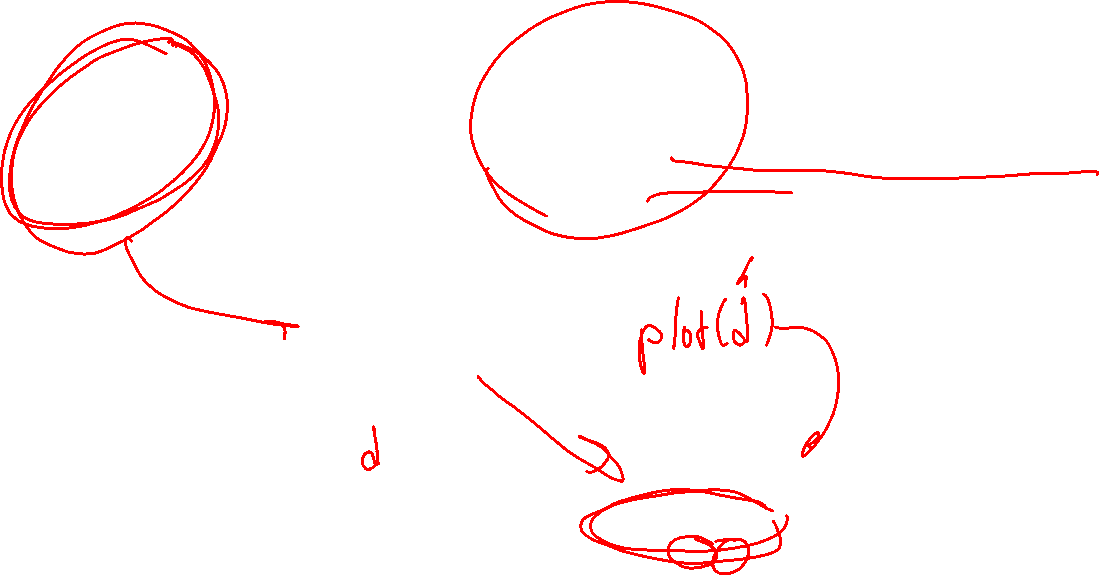 plot(d)
d